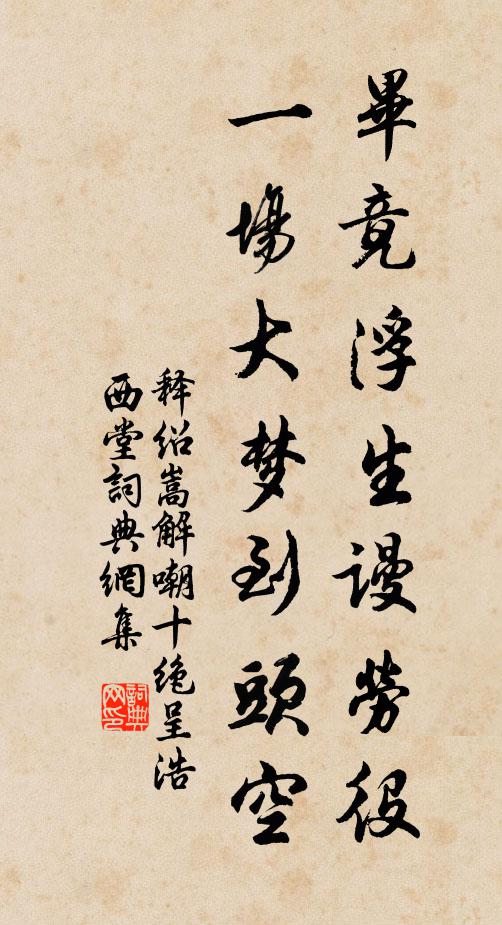 畢竟浮生謾勞役
一場大梦到頭空
释绍嵩解嘲十绝呈浩
西堂詞典網集
詞典
网印